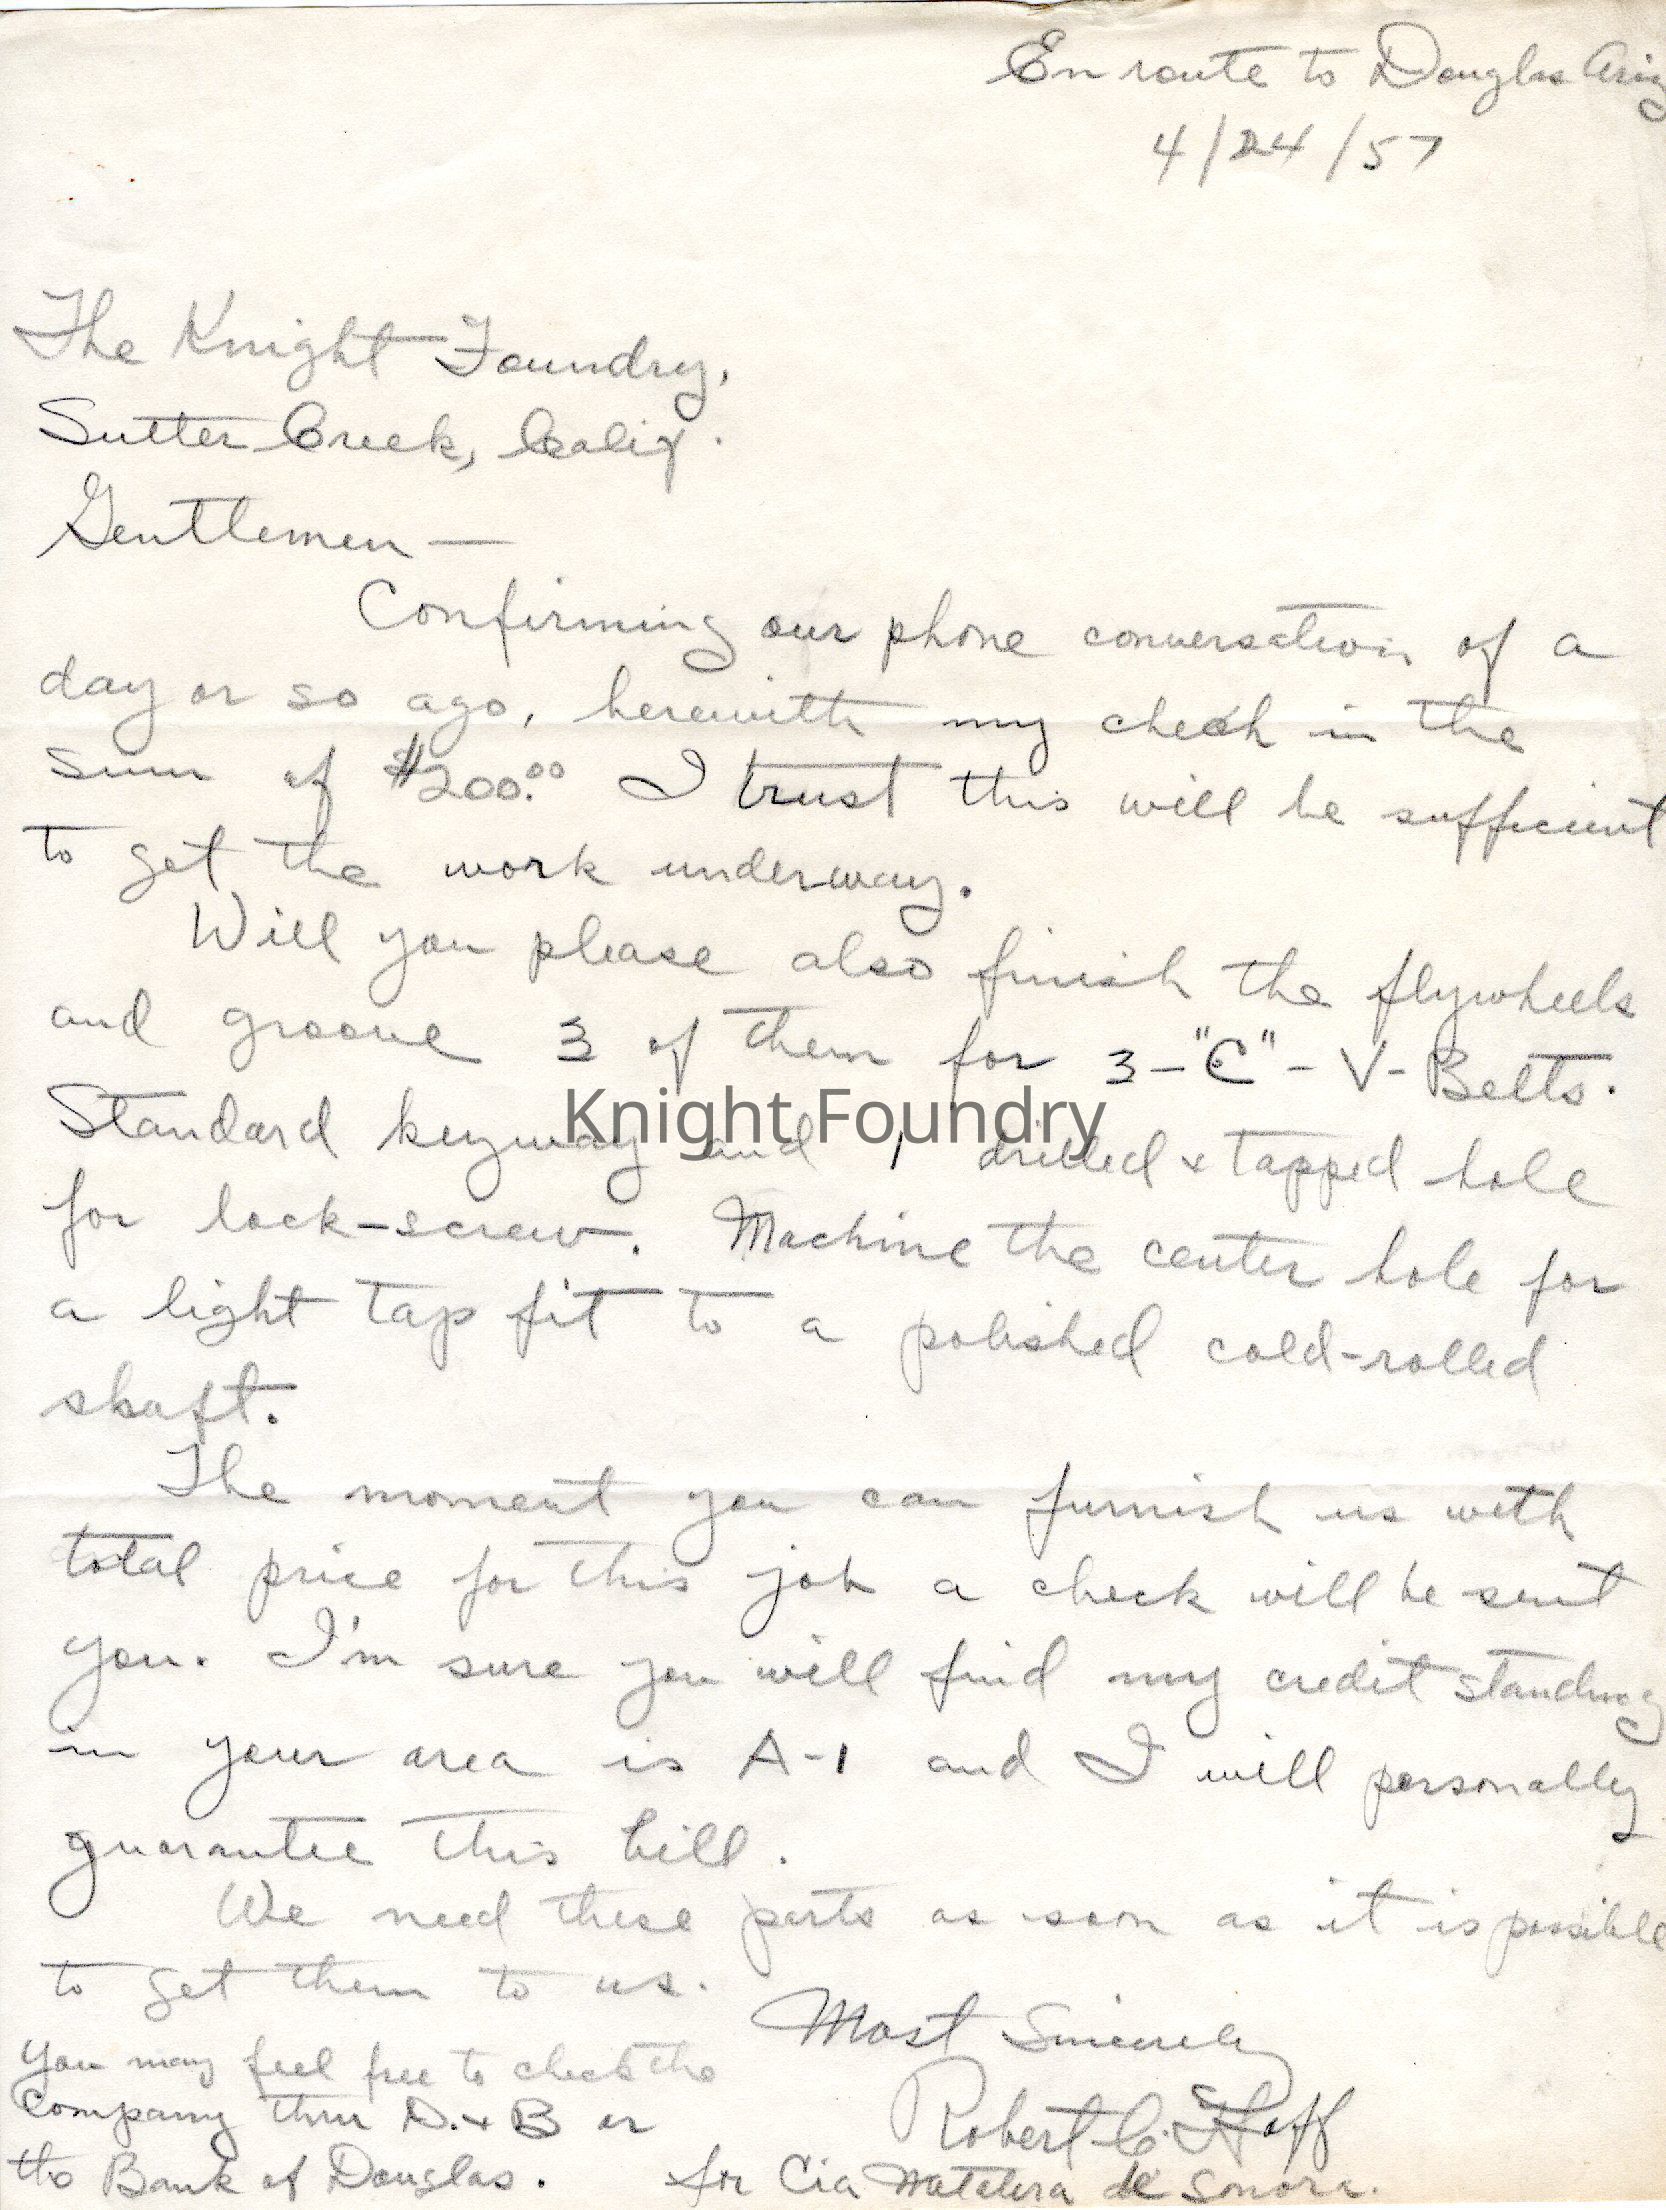 En route to Douglas Ariz
4/24/57
The Knight Foundry,
Sutter Creek, Calif.
Gentlemen —
Confirming our phone conversation of a
day or so ago, herewith my check in the
sum of $200.00 I trust this will be sufficient
to get the work underway.
Will you please also finish the flywheels
and groove 3 of them for 3-"C"-V-Belts.
Standard keyway and 1 drilled & tapped hole
for lock-screw. Machine the center hole for
a light tap fit to a polished cold-rolled
shaft.
The moment you can furnish us with
total price for this job a check will be sent
you. I'm sure you will find my credit standing
in your area is A-1 and I will personally
guarantee this bill.
We need these parts as soon as it is possible
to get them to us.
Most Sincerely
Robert C. Hoff
for Cia de Sonora.
You may feel free to check the
Company thru D. & B or
the Bank of Douglas.
Knight Foundry